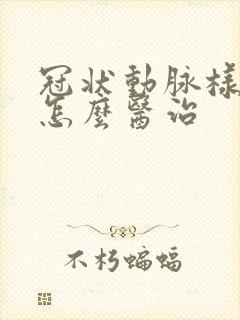 冠状動脉様
怎麼醫治
不朽蝙蝠